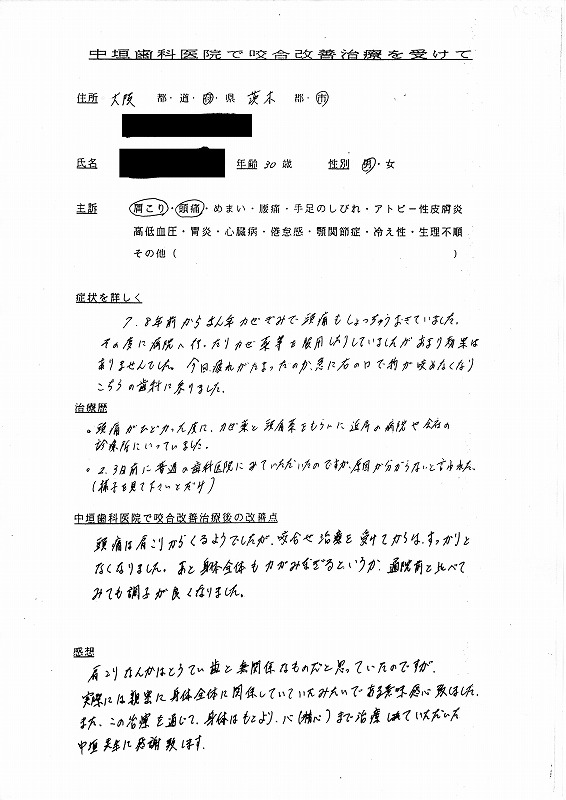 中垣歯科医院で咬合改善治療を受けて
住所 大阪 都・道・府・県 茨木 郡・市
氏名 年齢 30 歳 性別 男・女
主訴 肩こり・頭痛・めまい・腰痛・手足のしびれ・アトピー性皮膚炎
高低血圧・胃炎・心臓病・倦怠感・顎関節症・冷え性・生理不順
その他( )
症状を詳しく
7、8年前からまん年カゼぎみで頭痛もしょっちゅうおきていました。
その度に病院へ行ったりカゼ薬等を服用したりしていましたがあまり効果は
ありませんでした。今回疲れがたまったのか、急に右の口で物が咬めなくなり
こちらの歯科に来ました。
治療歴
。頭痛がひどかった度に、カゼ薬と頭痛薬をもらいに近所の病院や会社の
診療所にいっていました。
。2、3日前に普通の歯科医院にみていただいたのですが、原因が分からないと言われた。
(様子を見て下さいとだけ)
中垣歯科医院で咬合改善治療後の改善点
頭痛は肩こりからくるようでしたが、咬合せ治療を受けてからは、すっかりと
なくなりました。あと身体全体も力がみなぎるというか、通院前と比べて
みても調子が良くなりました。
感想
肩こりなんかはとうてい歯と無関係なものだと思っていたのですが、
実際には親密に身体全体に関係していていたみたいである意味感心致しました。
また、この治療を通じて、身体はもとより、心(精心)まで治療していただいた
中垣先生に感謝致します。